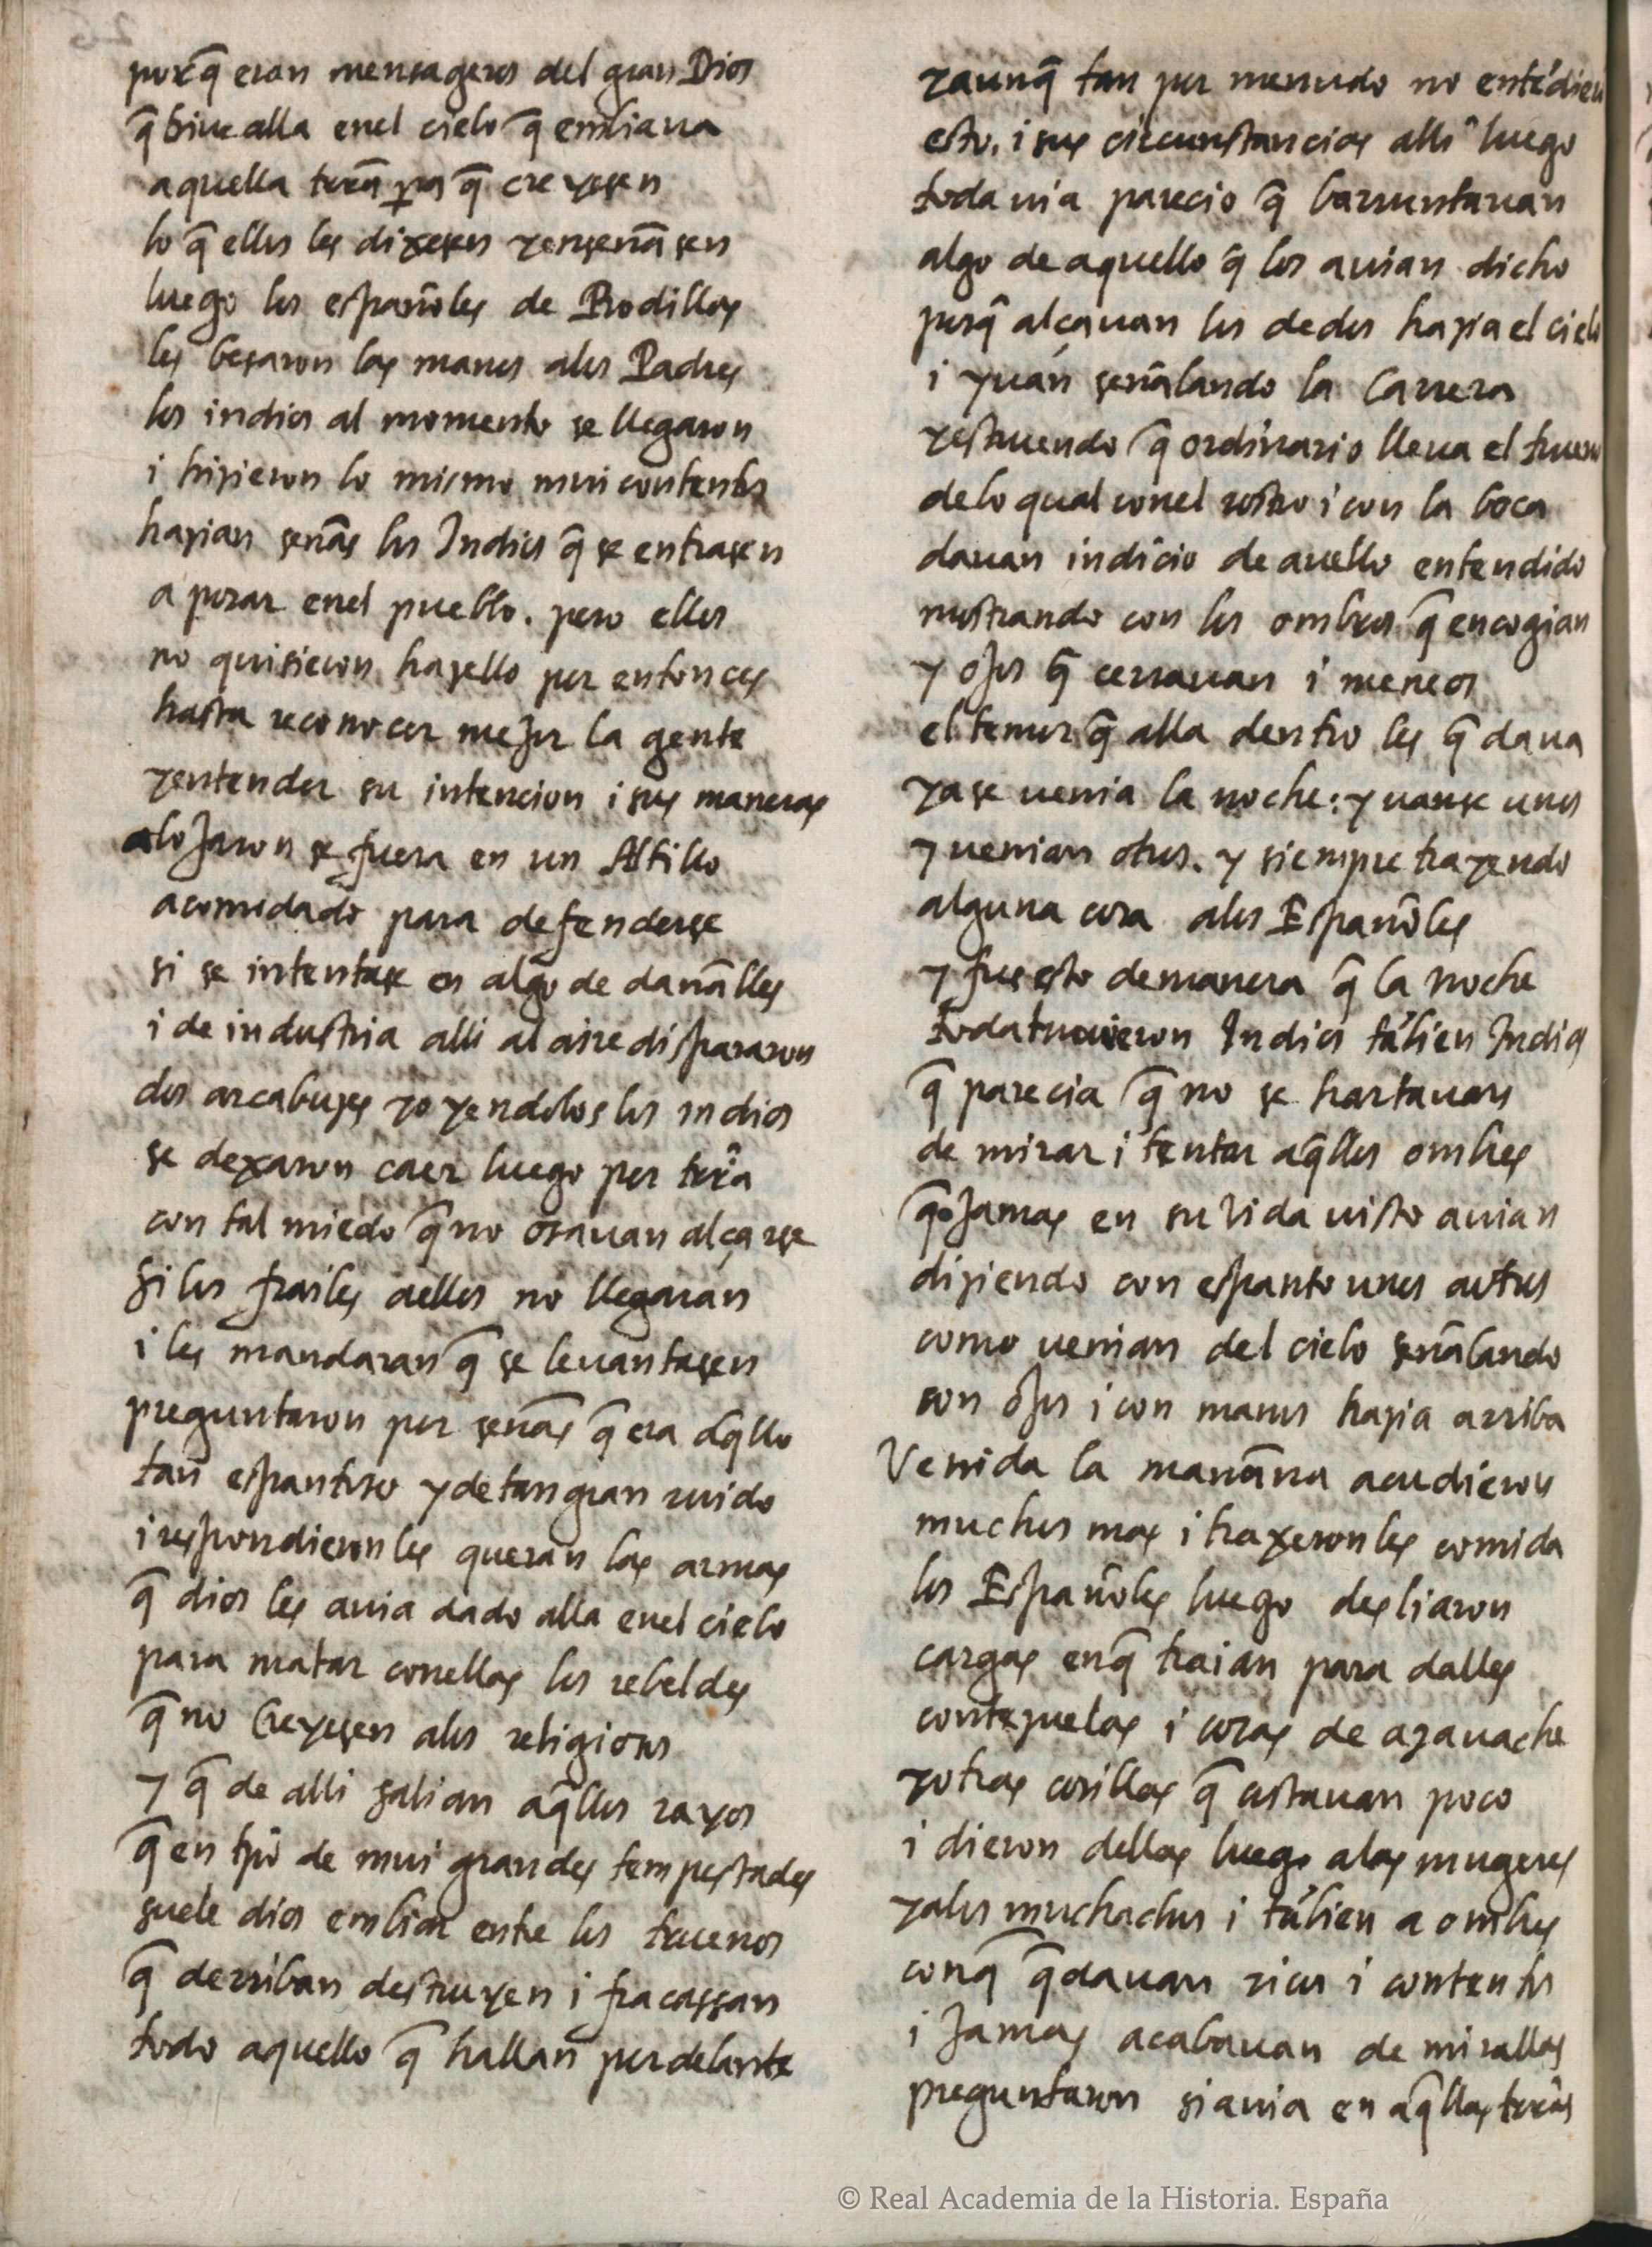 porq̃ eran mensageros del gran Dios
q̃ biue alla enel cielo q̃ embiaua
aquella terã pa q̃ creyesen
lo q̃ ellos les dixesen yenseñasen
luego los españoles de Rodillas
les besaron las manos alos Padres
los indios al momento se llegaron
i hizieron lo mismo mui contentos
hazian señas los Indios q̃ se entrasen
a posar enel pueblo. pero ellos
no quisieron hazello por entonces
hasta reconocer mejor la gente
yentender su intencion i sus maneras
alojaron se fuera en un Altillo
acomidado para defenderse
si se intentase en algo de dañalles
i de industria alli al aire dispararon
dos arcabuzes yoyendolos los indios
se dexaron caer luego por terã
con tal miedo q̃ no osauan alçarse
si los frailes aellos no llegaran
i les mandaran q̃ se leuantasen
preguntaron por señas q̃ era aq̃llo
tan espantoso y de tan gran ruido
i respondieronles queran las armas
q̃ dios les auia dado alla enel cielo
para matar conellas los rebeldes
q̃ no Creyesen alos religiosos
y q̃ de alli salian aq̃llos rayos
q̃ en tpõ de mui grandes tempestades
suele dios embiar entre los truenos
q̃ derriban destruyen i fracassan
todo aquello q̃ hallan por delante
yaunq̃ tan por menudo no entẽdieron
esto. i sus circunstancias alli luego
toda uia parecio q̃ barruntauan
algo de aquello q̃ los auian dicho
porq̃ alçauan los dedos hazia el cielo
i yuan señalando la Carrera
yestruendo q̃ ordinario lleua el trueno
de lo qual conel rostro i con la boca
dauan indicio de auello entendido
mostrando con los ombros q̃ encogian
y ojos q̃ cerrauan i meneos
el temor q̃ alla dentro les q̃daua
ya se uenia la noche: yuanse unos
y uenian otros. y siempre trayendo
alguna cosa alos Españoles
y fue esto demanera q̃ la noche
toda tuuieron Indios tãbien Indias
q̃ parecia q̃ no se hartauan
de mirar i tentar aq̃llos ombres
q̃ Jamas en su Vida uisto auian
diziendo con espanto unos aotros
como uenian del cielo señalando
con ojos i con manos hazia arriba
Venida la mañana acudieron
muchos mas i traxeronles comida
los Españoles luego desliaron
cargas enq̃ traian para dalles
contezuelas i cosas de azauache
yotras cosillas q̃ costauan poco
i dieron dellas luego alas mugeres
yalos muchachos i tãbien a ombres
conq̃ q̃dauan ricos i contentos
i Jamas acabauan de mirallas
preguntaron si auia en aq̃llas terãs
© Real Academia de la Historia. España